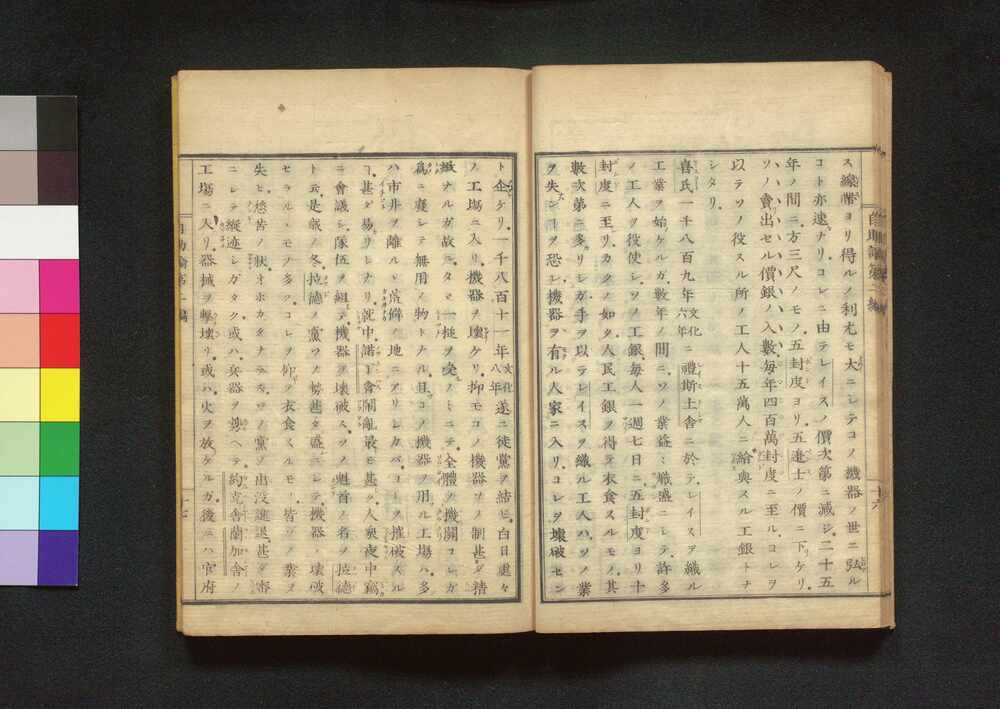 ス線幣ヨリ得ルノ利尤モ大ニシテコノ機器ノ世ニ弘ル
コト亦速ナリコレニ由テレイスノ價次第ニ減ジ二十五
年ノ間ニ方三尺ノモノ五封度ヨリ五邊士ノ價ニ下ケリ
ソノ賣出セル價銀ノ入數毎年四百萬封度ニ至ルコレヲ
以テソノ役スル所ノ工人十五萬人ニ給與スル工銀トナ
シタリ
喜氏一千八百九年文化六年ニ禮斯土舎ニ於テレイスヲ織ル
工業ヲ始ケルガ數年ノ間ニソノ業益々熾盛ニシテ許多
ノ工人ヲ役使シソノ工銀毎人一週七日ニ五封度ヨリ十
封度ニ至リカクノ如ク人民工銀ヲ得テ衣食スルモノ其
數次第ニ多リシガ手ヲ以テレイスヲ織ル工人ハソノ業
ヲ失ンコヲ恐レ機器ヲ有ル人家ニ入リコレヲ壊破セン
十六
ト企ケリ一千八百十一年文化八年遂ニ徒黨ヲ結ビ白日處々
ノ工塲ニ入リ機器ヲ壊ケリ抑モコノ機器ソノ制甚ダ精
緻ナルガ故ニタマ一挺ヲ突ノミニテ全體ノ機關コレガ
爲ニ廢シテ無用ノ物トナル且コノ機器ヲ用ル工塲ハ多
ハ市井ヲ離ルヽ荒僻ノ地ニアリシカバコトヲ摧破スル
コ甚ダ易リシナリ就中諾丁會閙亂最モ甚ク人衆夜中窩
ニ會議シ隊伍ヲ組テ機器ヲ壊破スソノ魁首ノ名ヲ拉德
ト云是歳ノ冬拉德ノ黨ソノ勢甚ダ盛ニシテ機器ノ壊破
セラルヽモノ多クコレヲ仰テ衣食スルモノ皆ソノ業ヲ
失ヒ愁苦ノ狀オホカタナラズソノ黨ノ出沒進退甚ダ審
ニシテ縱迹シガタク或ハ兵器ヲ携ヘテ約克舎蘭加舎ノ
工塲ニ入リ器械ヲ撃壊リ或ハ火ヲ放ケルガ後ニハ官府
十七